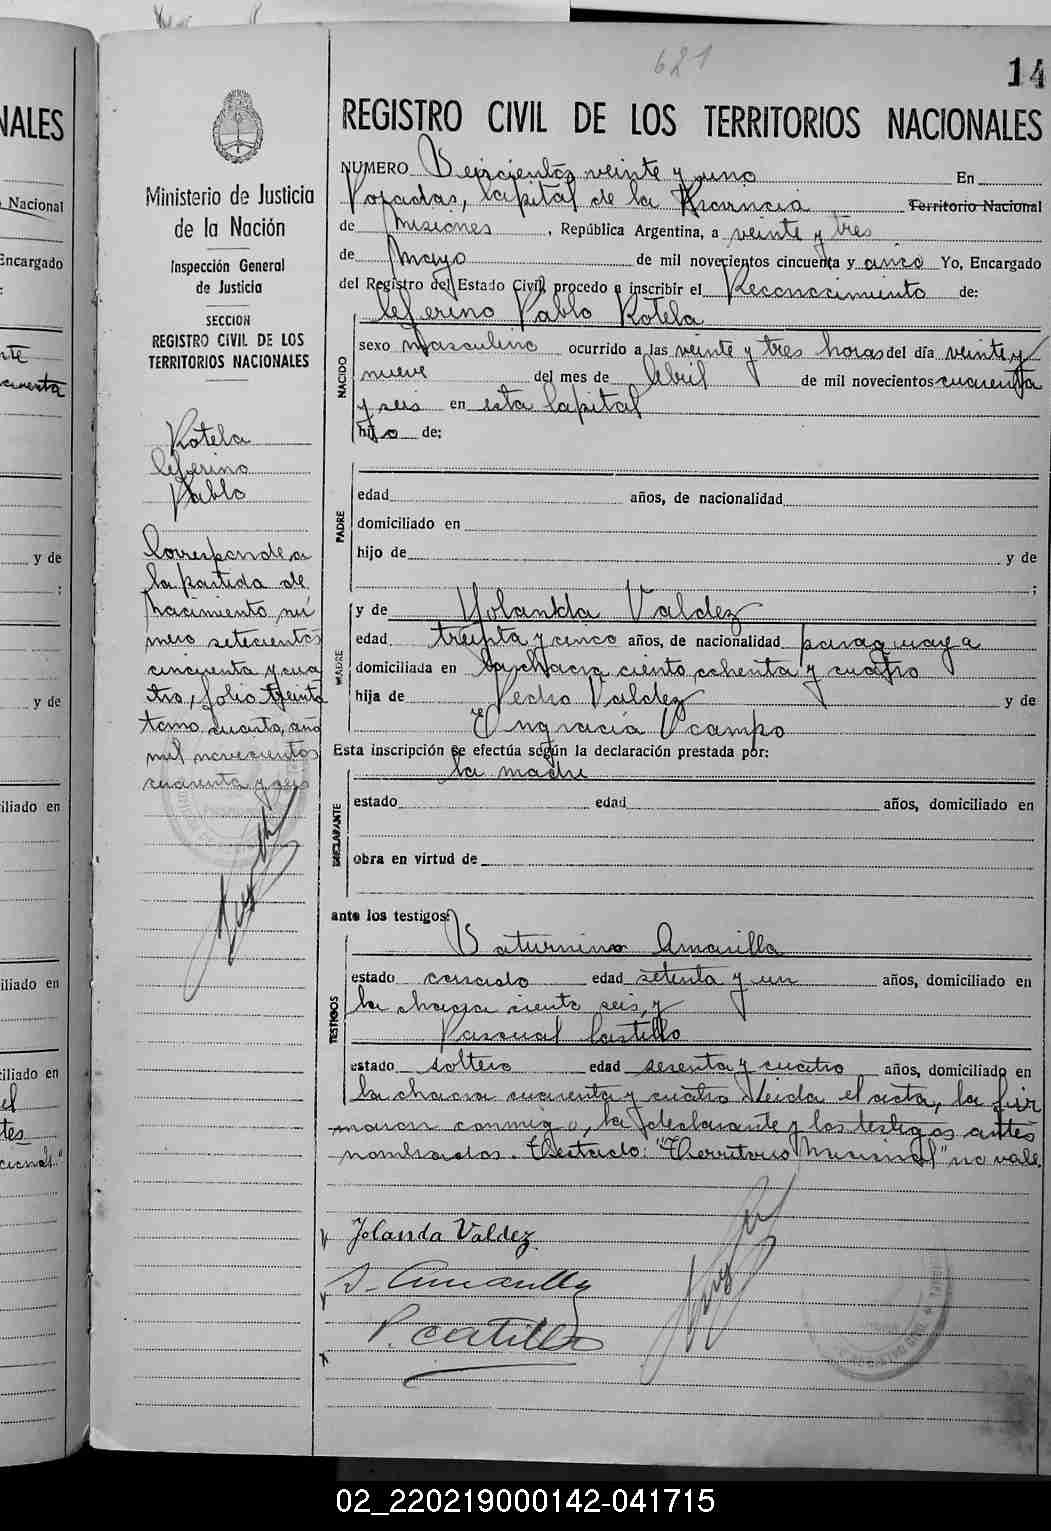 621
14
NALES
REGISTRO CIVIL DE LOS TERRITORIOS NACIONALES
Ministerio de Justicia
de la Nación
Inspección General
de Justicia
SECCION
REGISTRO CIVIL DE LOS
TERRITORIOS NACIONALES
Rotela
Ceferino
Pablo
Corresponde a
la partida de
nacimiento, nú
mero setecientos
cincuenta y cua
tro, folio treinta
tomo cuarto, año
mil novecientos
cuarenta y seis
NUMERO Seiscientos veinte y uno En
Posadas, Capital de la Provincia Territorio Nacional
de Misiones, República Argentina, a veinte y tres
de Mayo de mil novecientos cincuenta y cinco Yo, Encargado
del Registro del Estado Civil, procedo a inscribir el Reconocimiento de:
Ceferino Pablo Rotela
NACIDO
sexo masculino ocurrido a las veinte y tres horas del día veinte y
nueve del mes de Abril de mil novecientos cuarenta
y seis en esta Capital
hijo de:
PADRE
edad años, de nacionalidad
domiciliado en
hijo de y de
;
MADRE
y de Yolanda Valdez
edad treinta y cinco años, de nacionalidad paraguaya
domiciliada en la chacra ciento ochenta y cuatro
hija de Pedro Valdez y de
Engracia Ocampo
Esta inscripción se efectúa según la declaración prestada por:
la madre
DECLARANTE
estado edad años, domiciliado en
obra en virtud de
ante los testigos:
Saturnino Amarilla
TESTIGOS
estado casado edad setenta y un años, domiciliado en
la chacra ciento seis, y
Pascual Castillo
estado soltero edad sesenta y cuatro años, domiciliado en
la chacra cuarenta y cuatro. Leida el acta, la fir
maron conmigo, la declarante y los testigos antes
nombrados. Testado: "Territorio Nacional" no vale.
Yolanda Valdez
S. Amarilla
P. Castillo
o Nacional
Encargado
y de
;
y de
iliado en
iliado en
iliado en
02_220219000142-041715